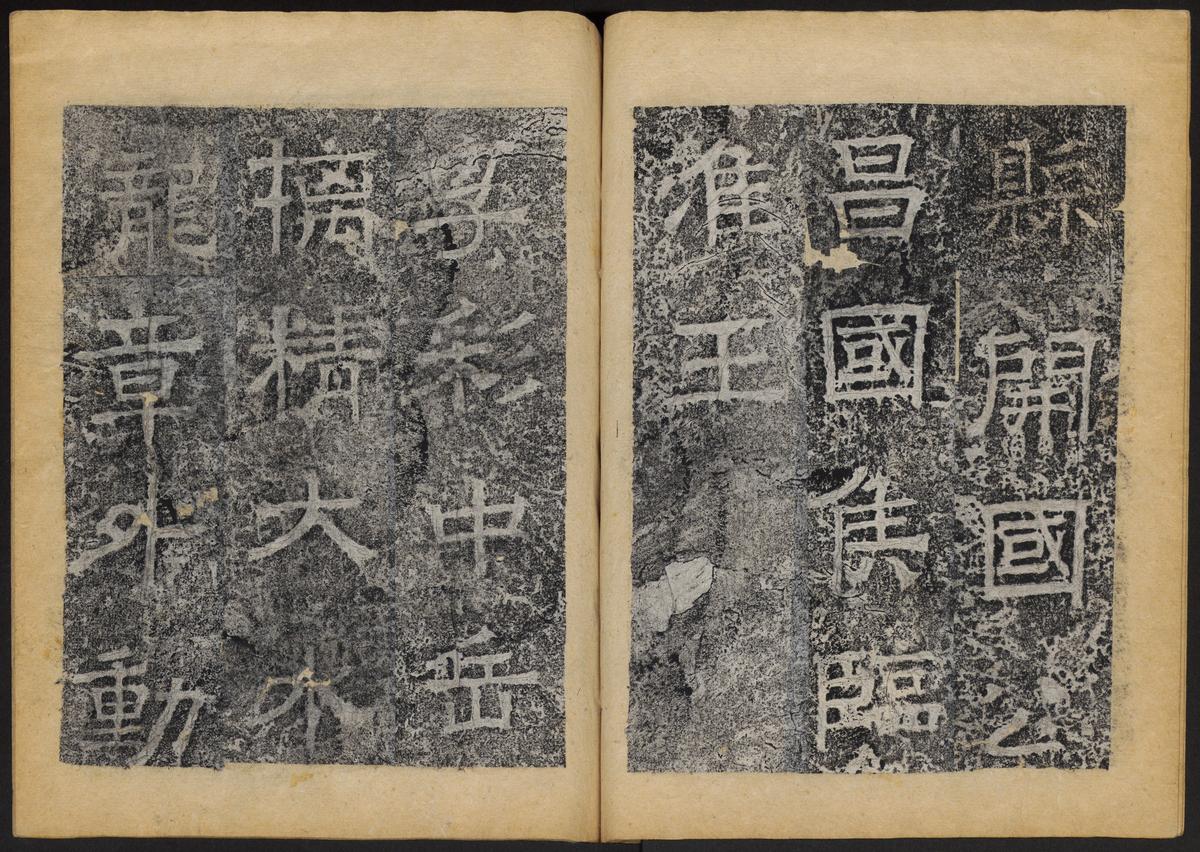 縣開國公
昌國侯臨
淮王
孕彩中岳
摛精大
龍章外動